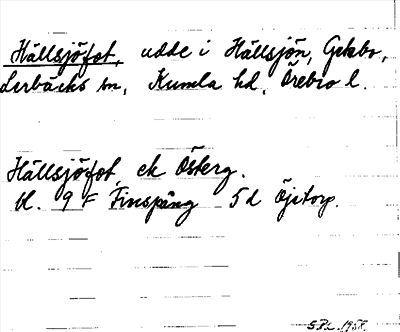 Hällsjöfot, udde i Hällsjön,
Lerbäcks sn, Kumla hd, Örebro l.
Hällsjöfot ek Österg.
bl. 9 F Finspång 5d Öjstorp.
1958.